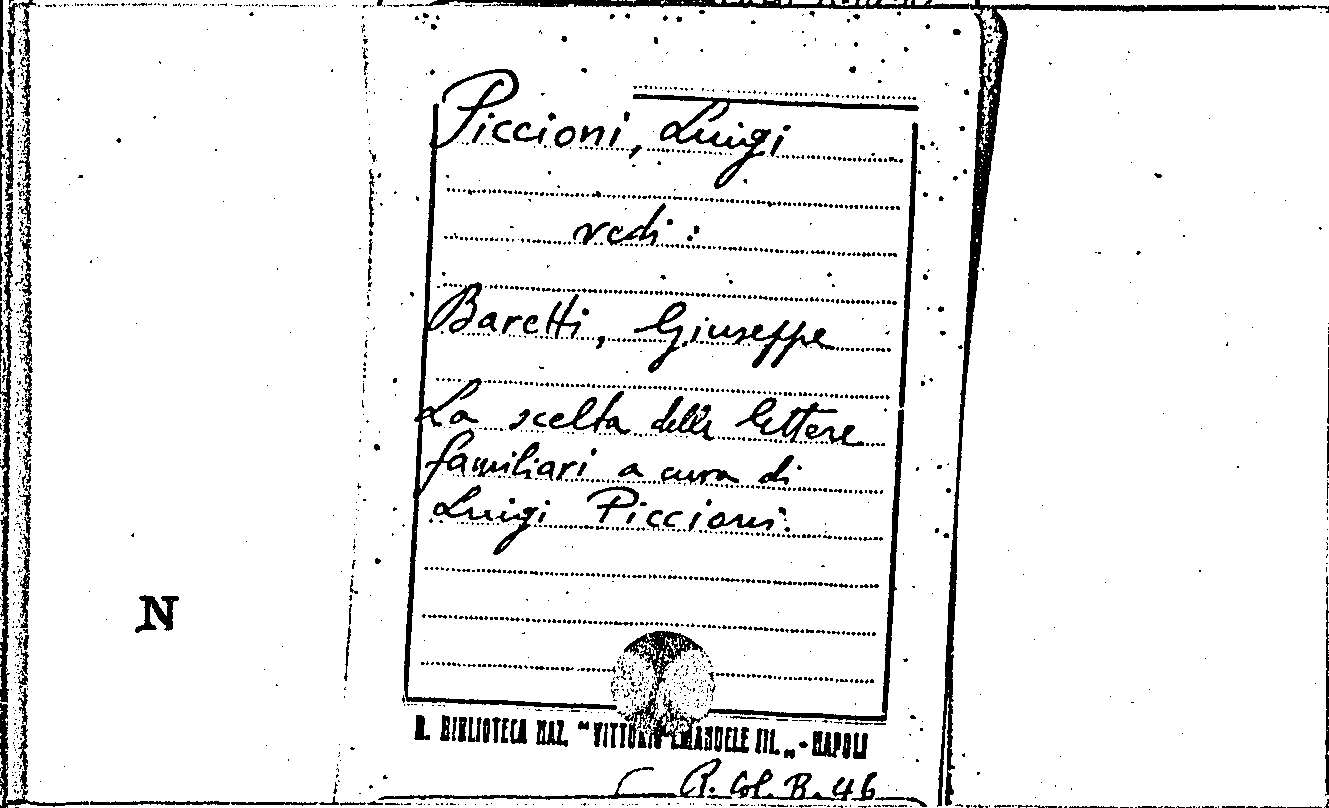 Piccioni, Luigi
vedi:
Baretti, Giuseppe
La scelta delle lettere
familiari a cura di
Luigi Piccioni.
N
R. BIBLIOTECA NAZ. "VITTORIO EMANUELE III." - NAPOLI
P. Col. B. 46